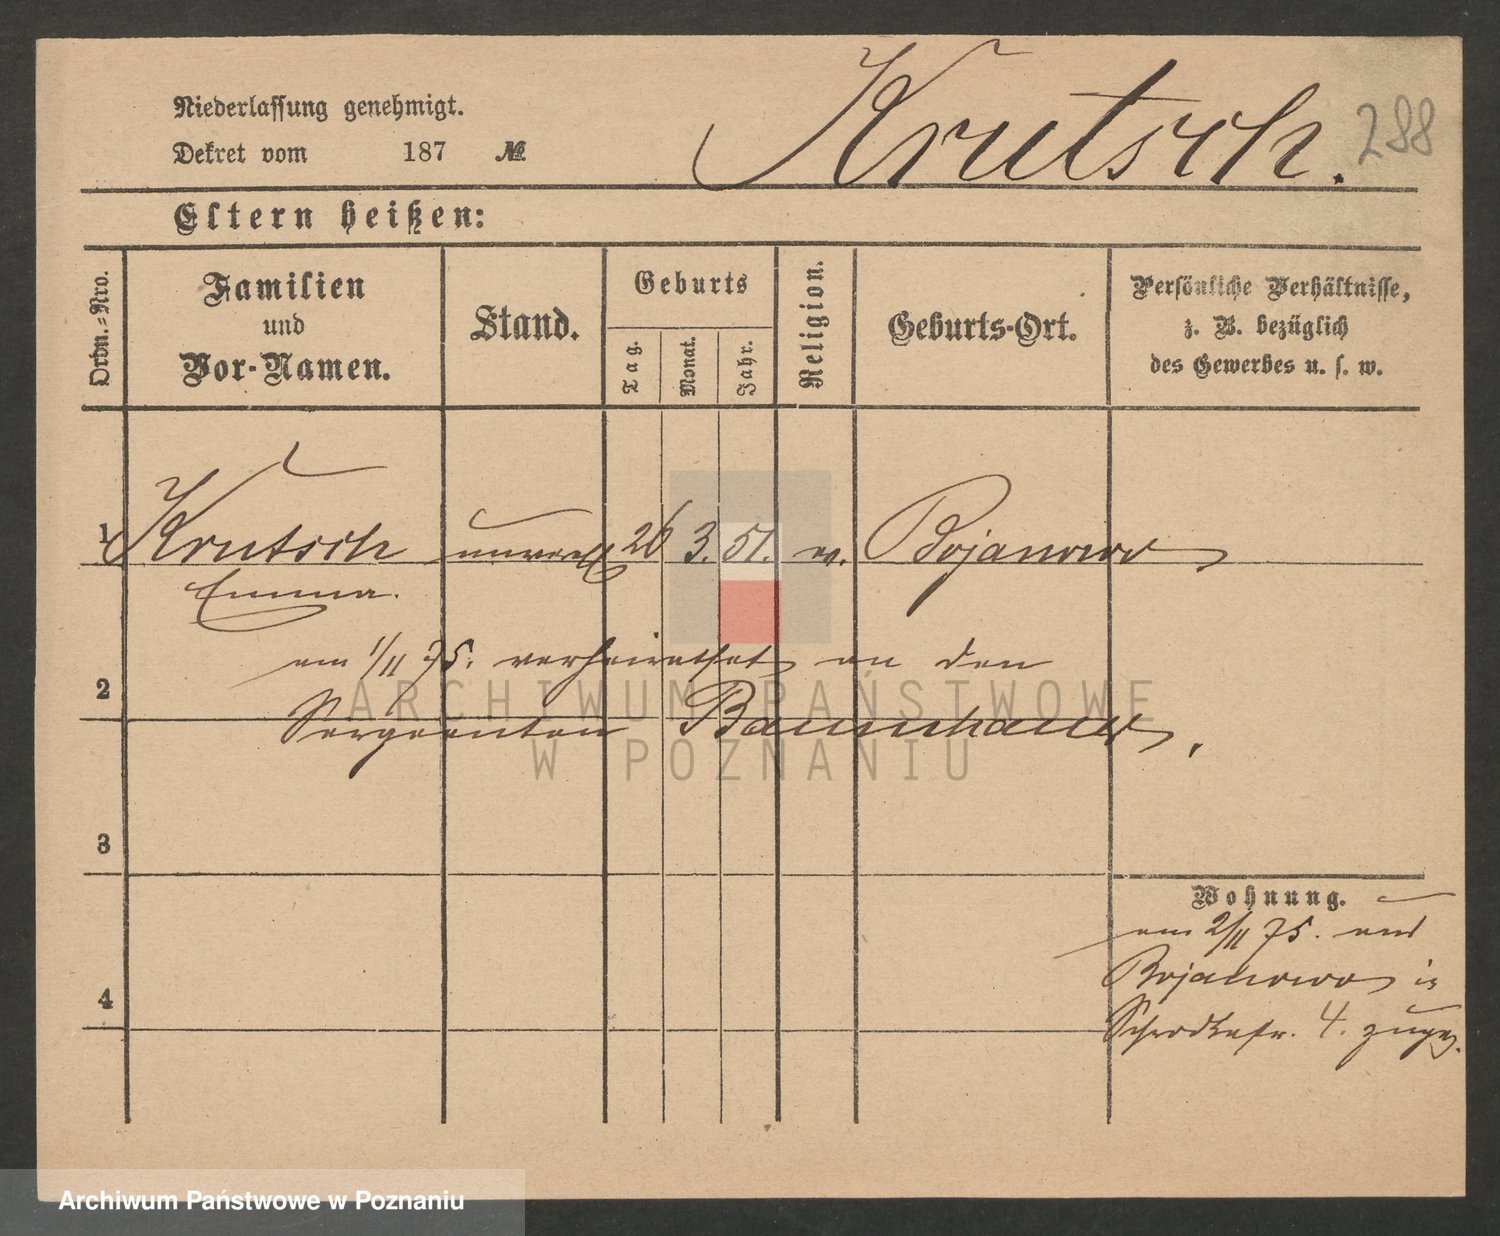 Krutsch.
288
Niederlassung genehmigt.
Dekret vom 187 №
Eltern heißen:
Ordn.-Nro.
Familien
und
Vor-Namen.
Stand.
Geburts
Tag.
Monat.
Jahr.
Religion.
Geburts-Ort.
Persönliche Verhältnisse,
z. B. bezüglich
des Gewerbes u. s. w.
1 Krutsch unverehl 26 3. 51. ev. Bojanowo
Emma.
am 1/11 75. verheirathet an den
2
Sergeanten
ARCHIWUM PAŃSTWOWE
W POZNANIU
3
Wohnung.
am 2/11 75. aus
Bojanowo in
4
Schrodkastr. 4. zugez.
Archiwum Państwowe w Poznaniu